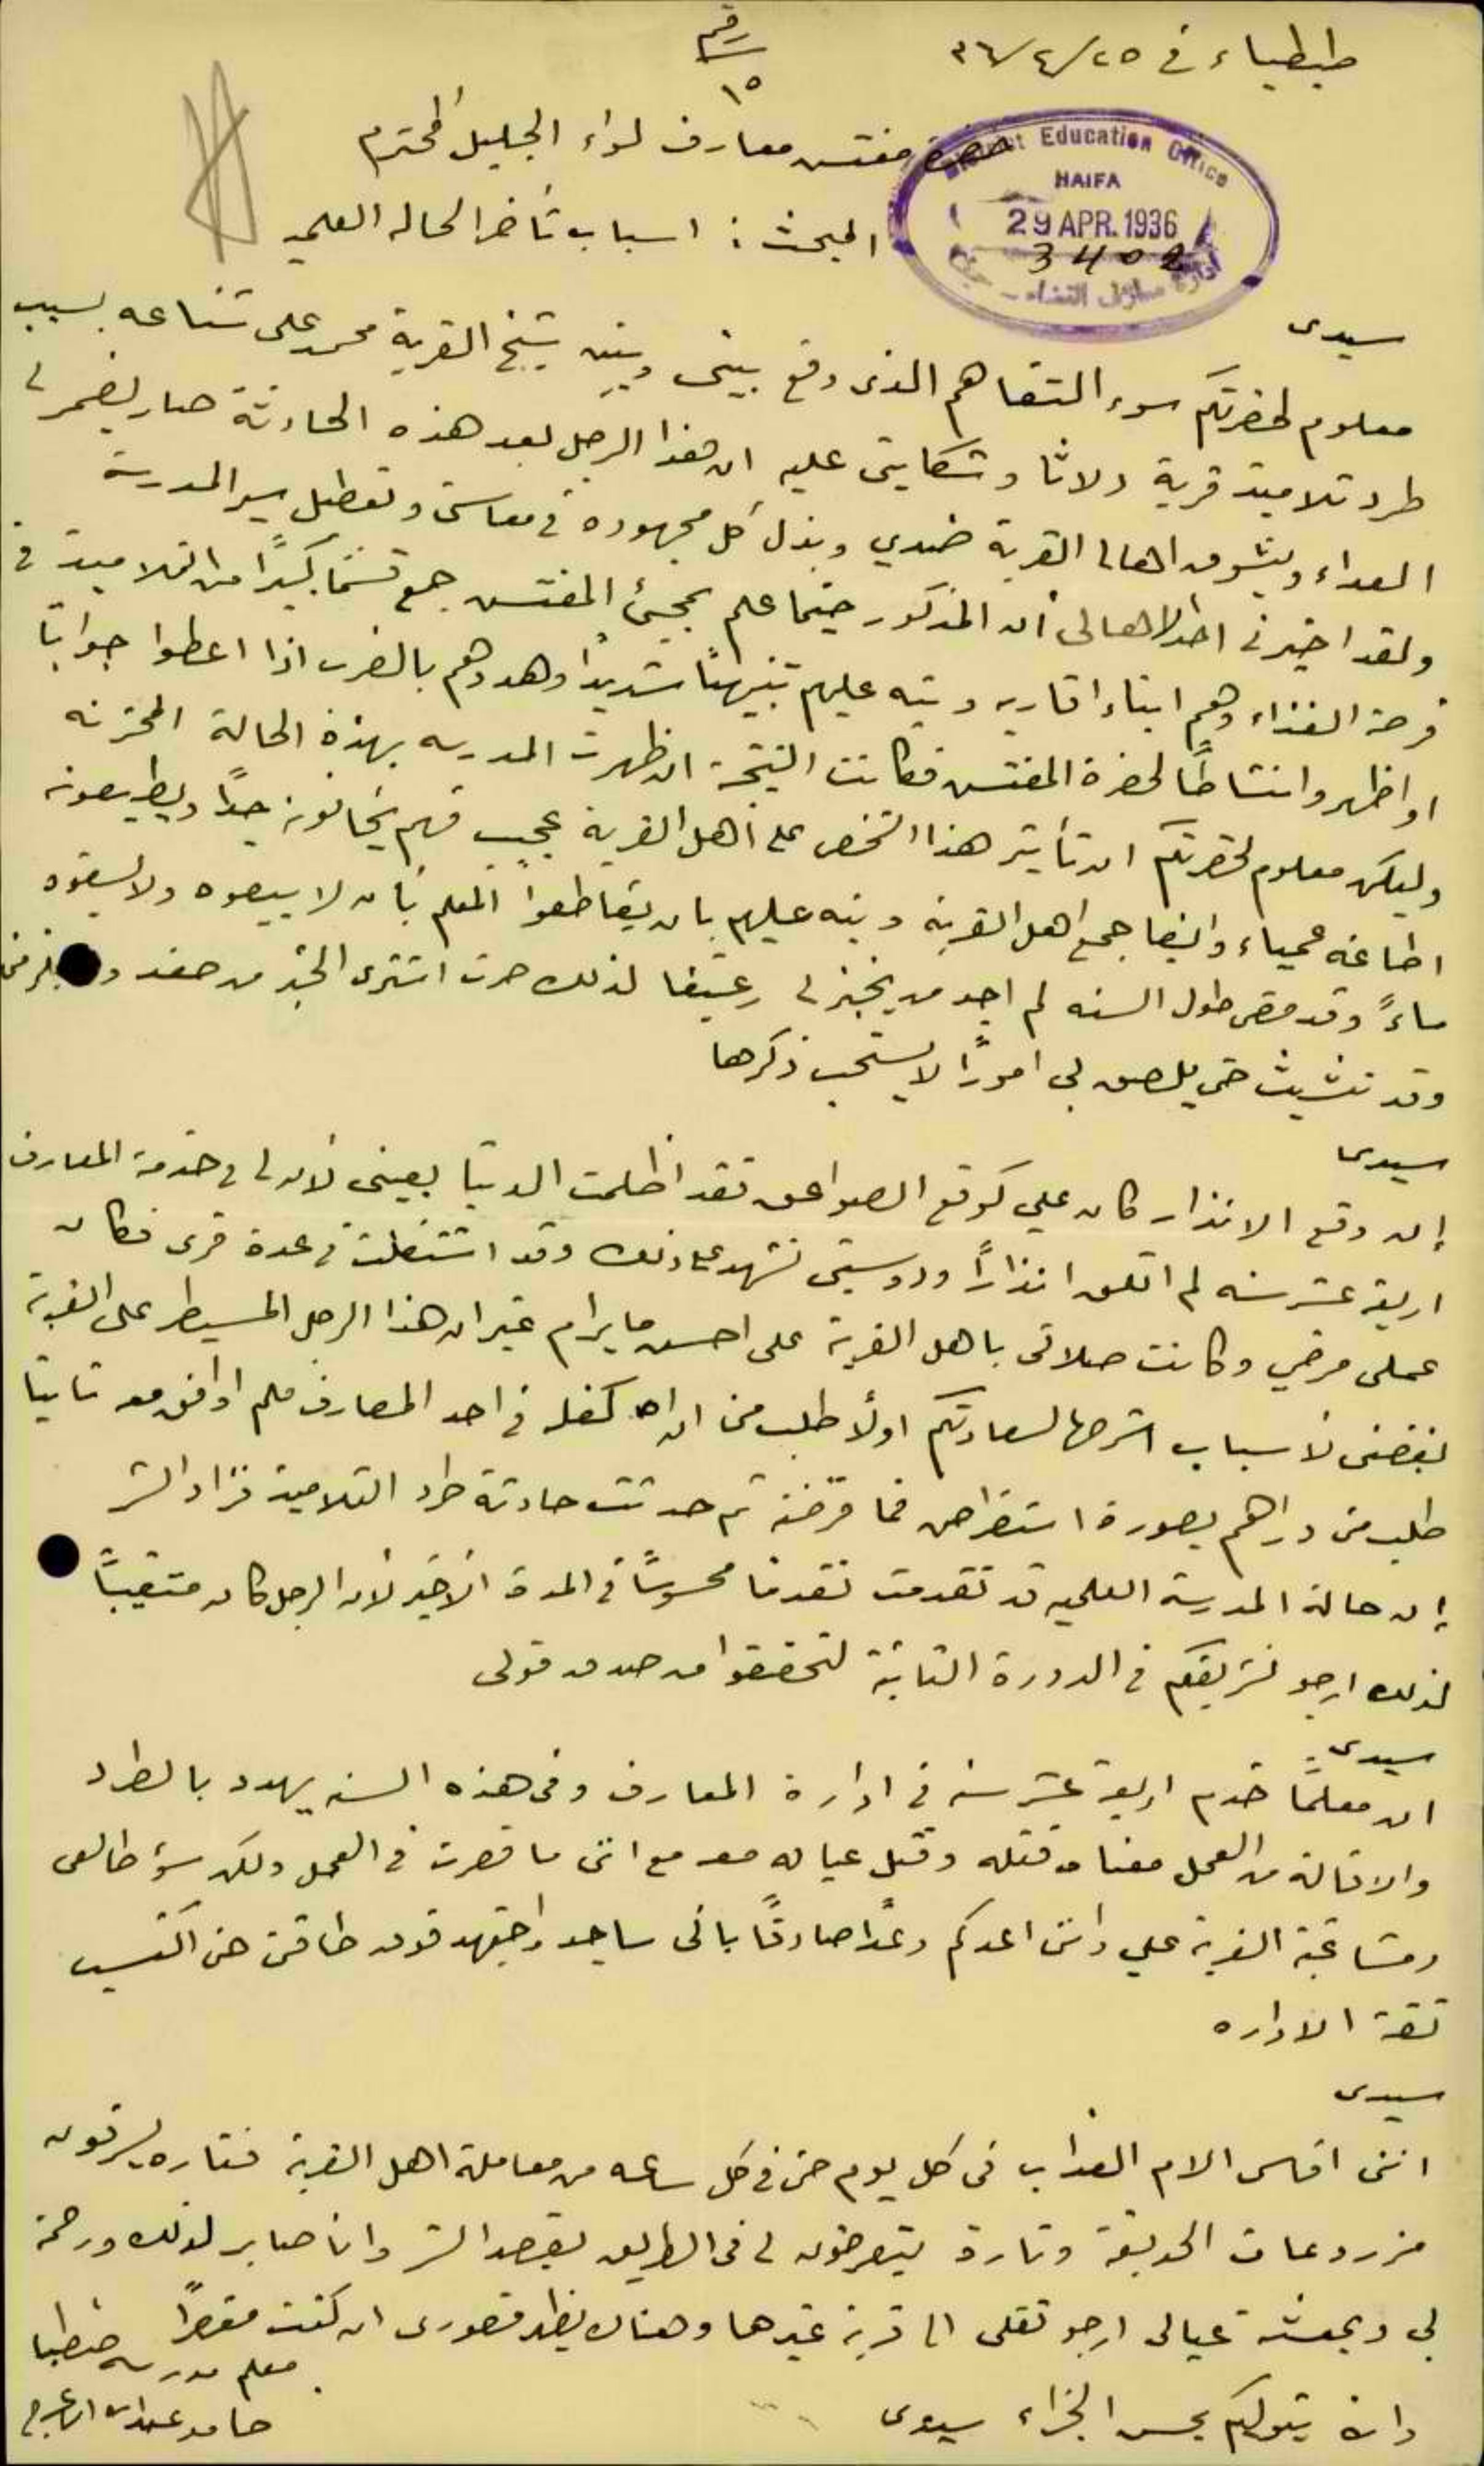 طيطباء في ٢٥/٤/٣٦
رقم
١٥
حضرة مفتش معارف لواء الجليل المحترم
District Education Office
HAIFA
29 APR. 1936
3402
المبحث : اسباب تأخر الحالة العلمية
سيدي
معلوم لحضرتكم سوء التفاهم الذي وقع بيني وبين شيخ القرية محمد علي شناعه بسبب
طرد تلاميذ قرية دلاثا وشكايتي عليه ان هذا الرجل بعد هذه الحادثة صار يضمر لي
العداء ويشوق اهالي القرية ضدي وبذل كل مجهوده في معاكستي وتعطيل سير المدرسة
ولقد اخبرني احد الاهالي أن المذكور حينما علم بمجيئ المفتش جمع قسمًا كبيرًا من التلاميذ في
فرصة الغذاء وهم ابناء اقاربه ونبه عليهم تنبيهًا شديدًا وهددهم بالضرب اذا اعطوا جوابًا
او اظهروا نشاطًا لحضرة المفتش فكانت النتيجة ان ظهرت المدرسه بهذه الحالة المحزنه
وليكن معلوم لحضرتكم ان تأثير هذا الشخص على أهل القرية عجيب فهم يخافونه جدًا ويطيعونه
اطاعه عمياء وايضا جمع اهل القرية ونبه عليهم بان يقاطعوا المعلم بأن لا يبيعوه ولا يسقوه
ماءً وقد مضى طول السنه لم اجد من يخبز لي رغيفا لذلك صرت اشتري الخبز من صفد
وقد تشبث حتى يلصق بي امورًا لا يستحب ذكرها
سيدي
إن وقع الانذار كان علي كوقع الصواعق فقد اظلمت الدنيا بعيني لان لي في خدمة المعارف
اربعة عشر سنه لم اتلق انذارًا ودوسيتي تشهد على ذلك وقد اشتغلت في عدة قرى فكان
عملي مرضي وكانت صلاتي باهل القرية على احسن ما يرام غير ان هذا الرجل المسيطر على القرية
بغضني لأسباب اشرحها لسعادتكم اولًا طلب مني ان اكفله في احد المصارف فلم اوافق معه ثانيا
طلب مني دراهم بصورة استقراض فما قرضته ثم حدثت حادثة طرد التلاميذ فزاد الشر
إن حالة المدرسة العلميه قد تقدمت تقدمًا محسوسًا في المدة الأخيرة لأن الرجل كان متغيبًا
لذلك ارجو تشريفكم في الدورة الثانية لتحققوا من صدق قولي
سيدي
ان معلمًا خدم اربعة عشر سنه في ادارة المعارف وفي هذه السنه يهدد بالطرد
والاقالة من العمل معناه قتله وقتل عياله معه مع انني ما قصرت في العمل ولكن سوء طالعي
ومشاغبة القرية علي وانني اعدكم وعدًا صادقًا باني ساجد واجتهد فوق طاقتي حتى اكتسب
ثقة الاداره
سيدي
انني اقاسي الام العذاب في كل يوم حتى في كل ساعه من معاملة اهل القرية فتاره يسرقون
مزروعات الحديقة وتارة يتعرضون لي في الطريق بقصد الشر وانا صابر لذلك ورحمة
بي وبمعيشة عيالي ارجو نقلي الى قرية غيرها وهناك يظهر قصوري ان كنت مقصرًا
والله يتولاكم بحسن الجزاء سيدي
معلم مدرسه طيطبا
حامد عبدالله